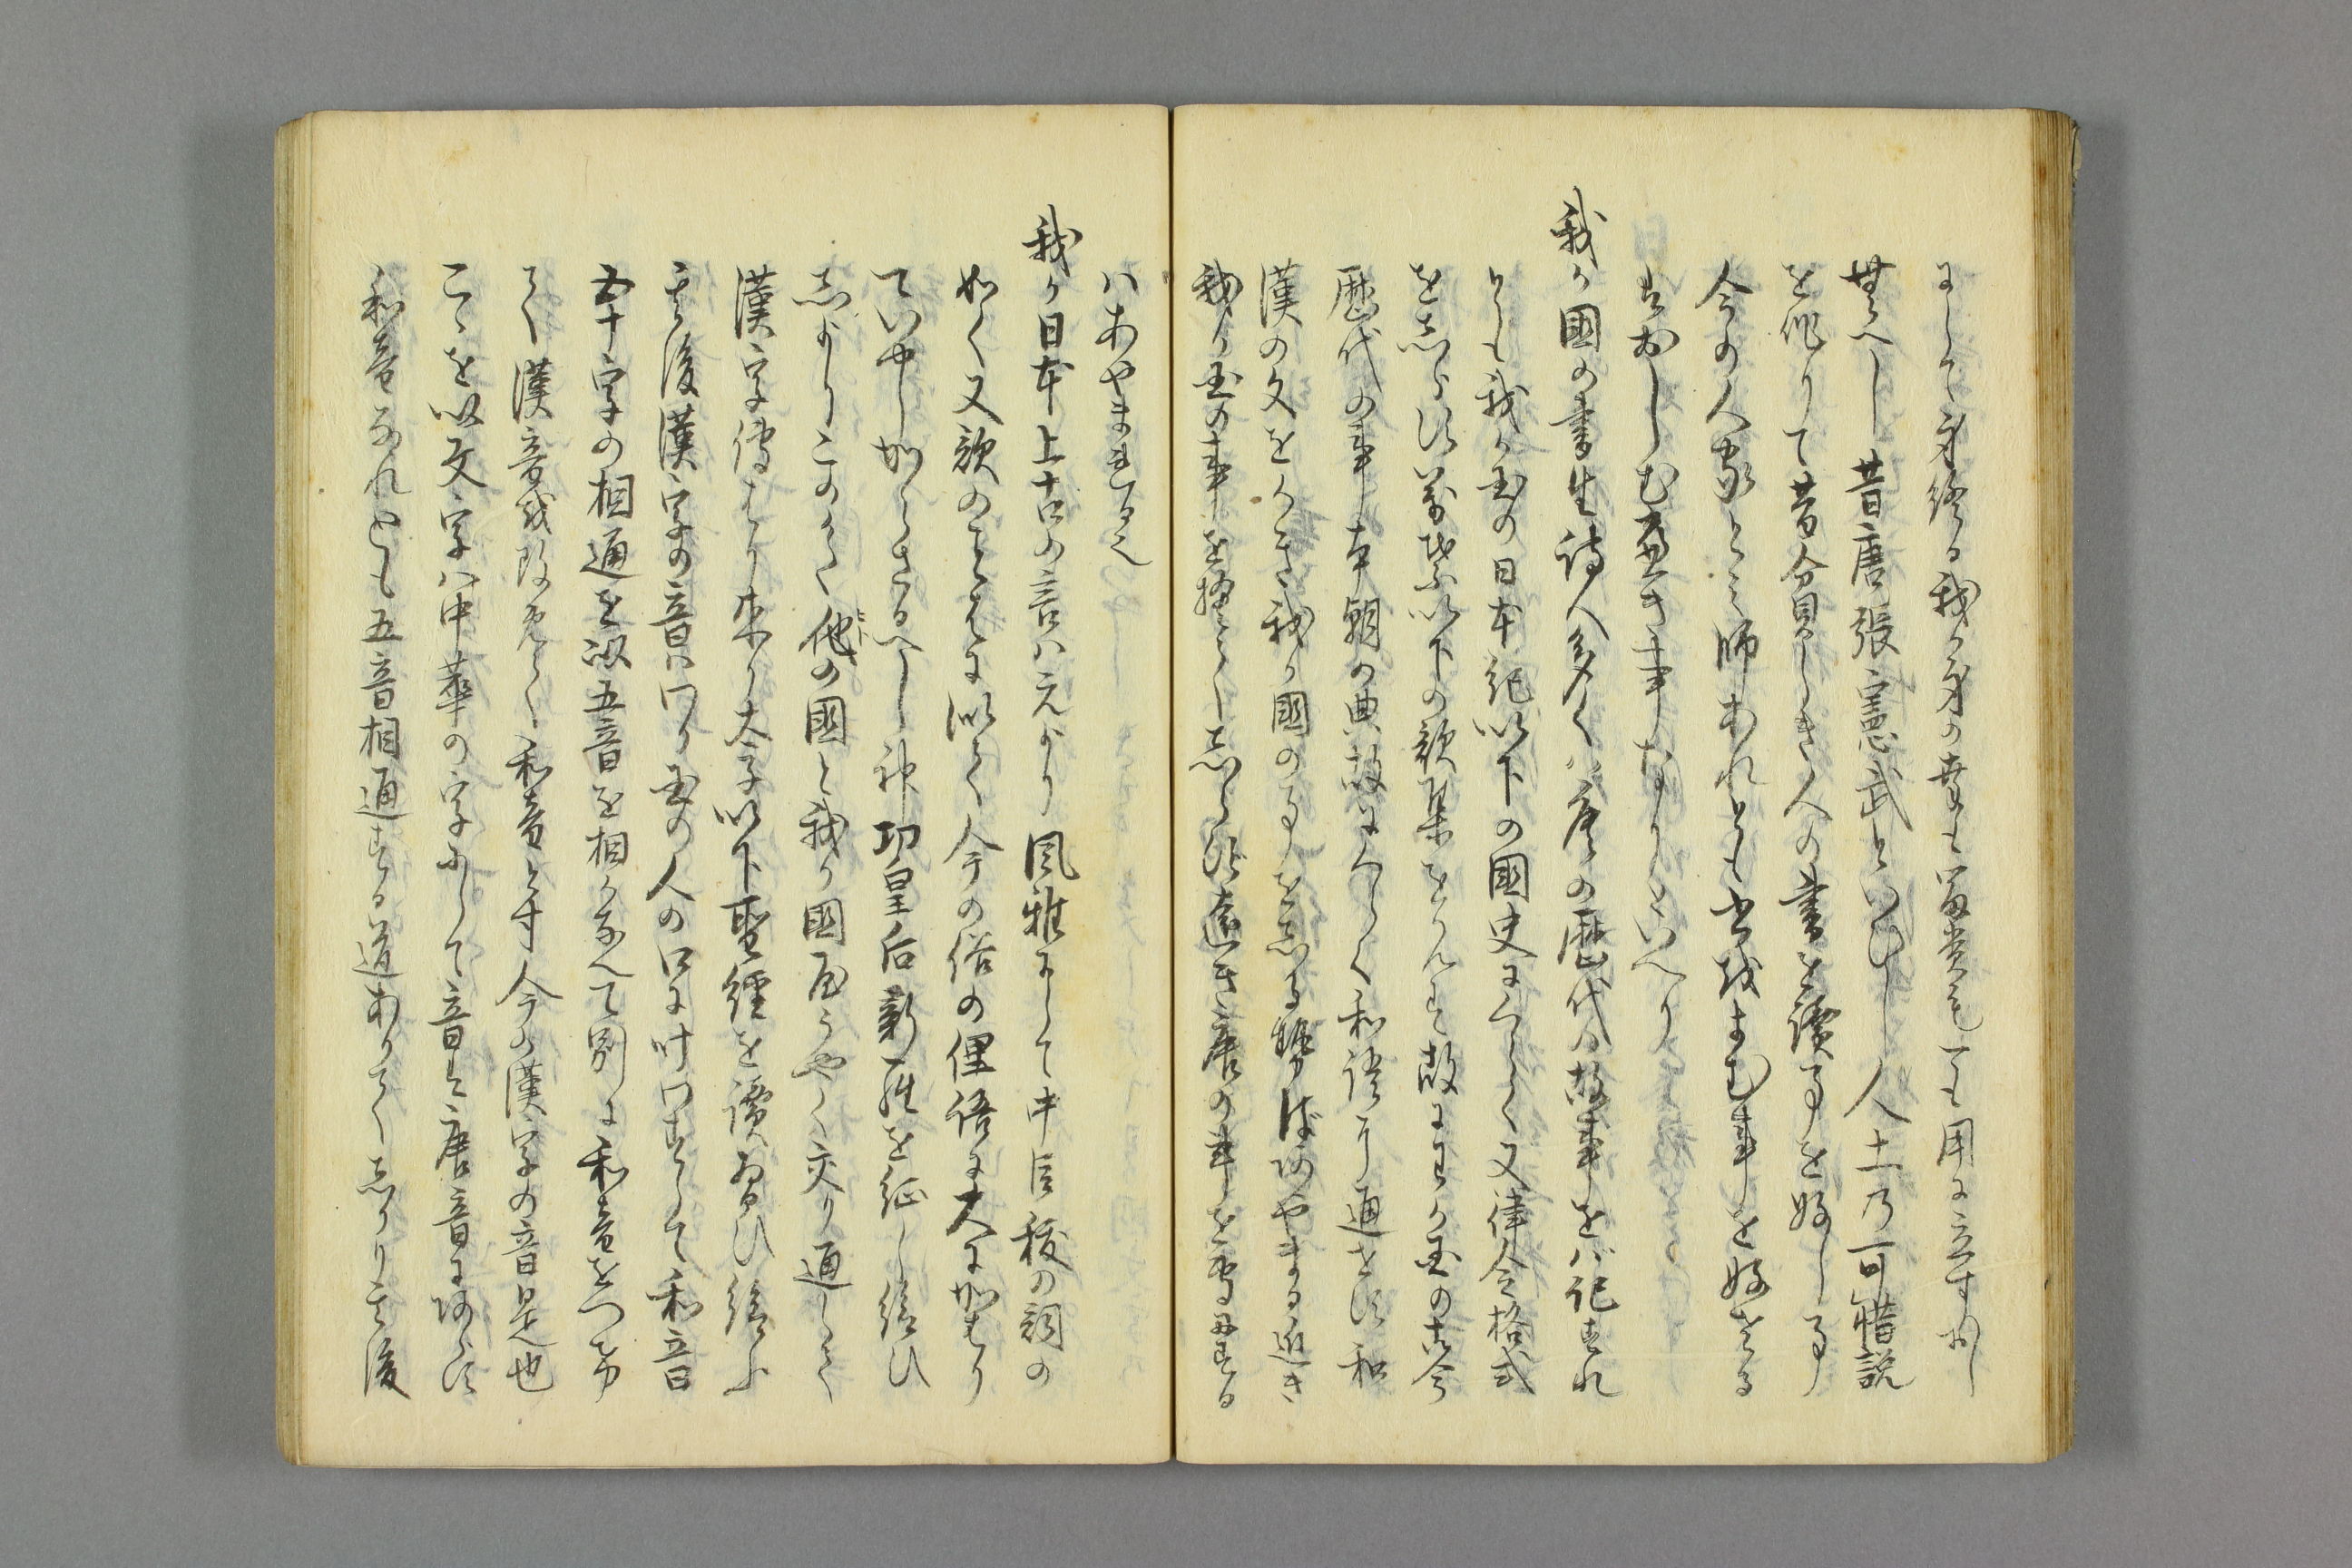 にして身終る我か身の芸も富貴も一も用に立すかし
無へし昔唐張憲武といひし人士乃可惜説
を作りて昔分貝しき人の書を讀事を好し事
今の人家とミ師あれとも書をよむ事を好さる
はおしむ遍き事なりといへり
我か國の書生詩人多くハ唐の歴代の故事をバ記すれ
とも我か国の日本紀以下の國史にくらく又律令格式
を志らす萬葉以下の歌集をみす故にわか国の古今
歴代の事本朝の典故にくらく和語に通せす和
漢の文をかき我か國の事を志る撰はあやまる近き
我か国の事を捨てし志らす遠き唐の事を専用する
ハあやまれる也
我か日本上古の言ハえかり風雅にして中臣祓の詞の
如く又歌のことはに似て今の俗の俚語は大に如はり
ていやしからさるへし神功皇后新羅を征し給ひ
志よりこのかた他の國と我か國屋うやく交り通して
漢字傳はり来り太子以下聖經を讀習ひ給ふ
其後漢字の音ハ口か国の人の口に叶ハすして和音
五十字の相通を以五音を相かなへて別に和音をつけ
て漢音を改めて和音とす今の漢字の音是也
こゝを以文字ハ中華の字にして音は唐音にあらす
和音なれとも五音相通する道ありてしかり其後